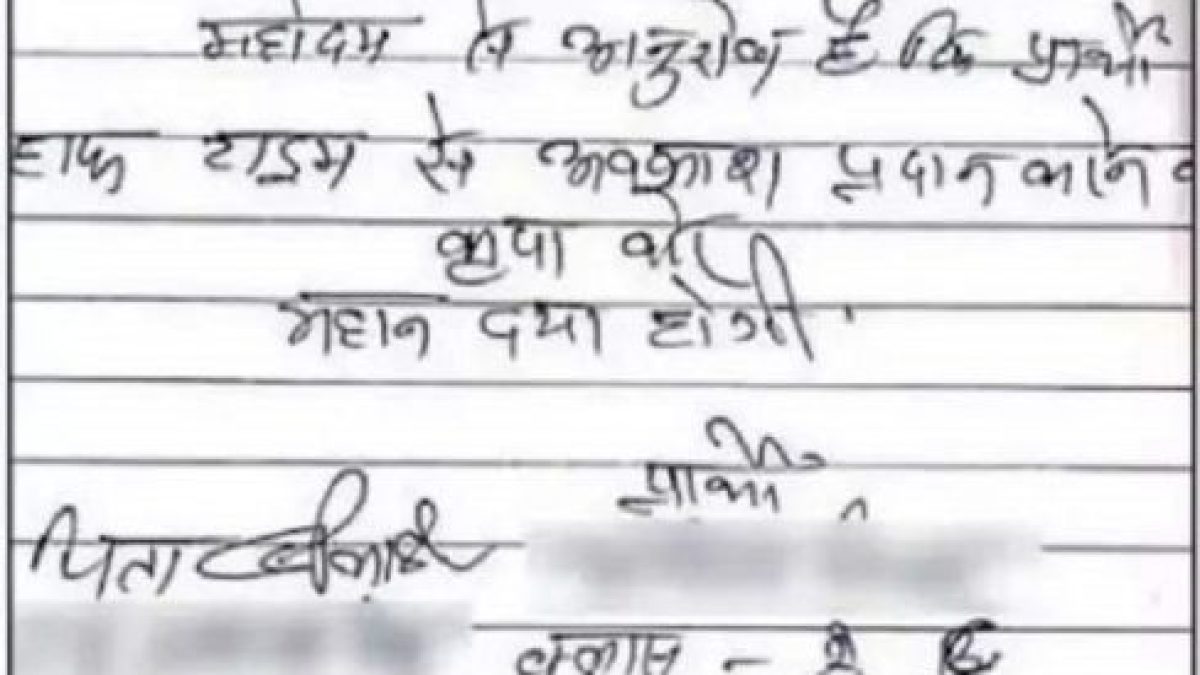 महोदय से अनुरोध है कि प्रार्थी
हाफ टाइम से अवकाश प्रदान करने क
कृपा करें
महान दया होगी
प्रार्थी
पिता
क्लास - 8